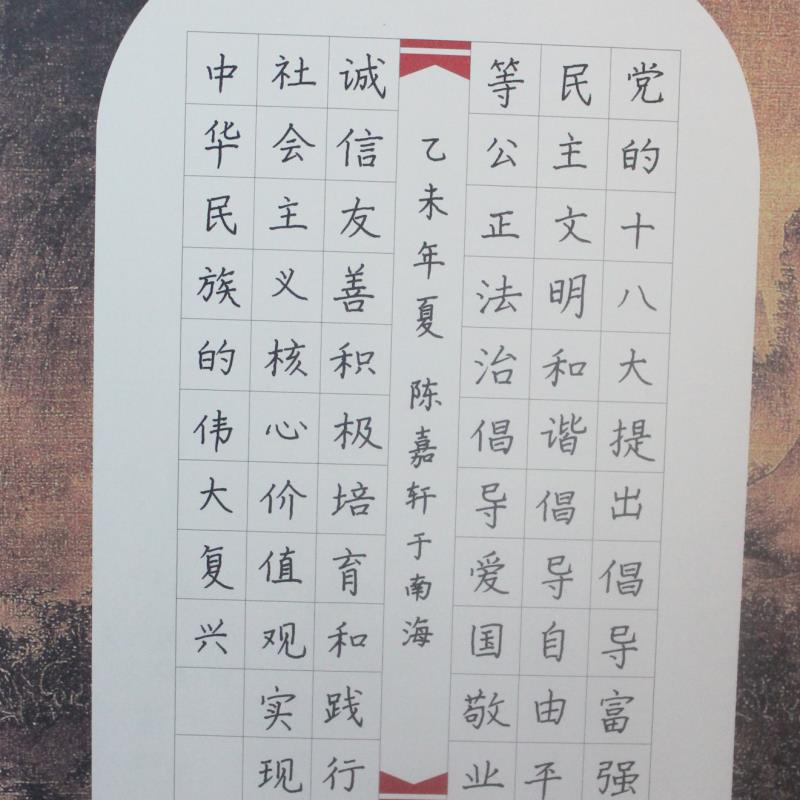 党的十八大提出倡导富强
民主文明和谐倡导自由平
等公正法治倡导爱国敬业
乙未年夏 陈嘉轩于南海
诚信友善积极培育和践行
社会主义核心价值观实现
中华民族的伟大复兴